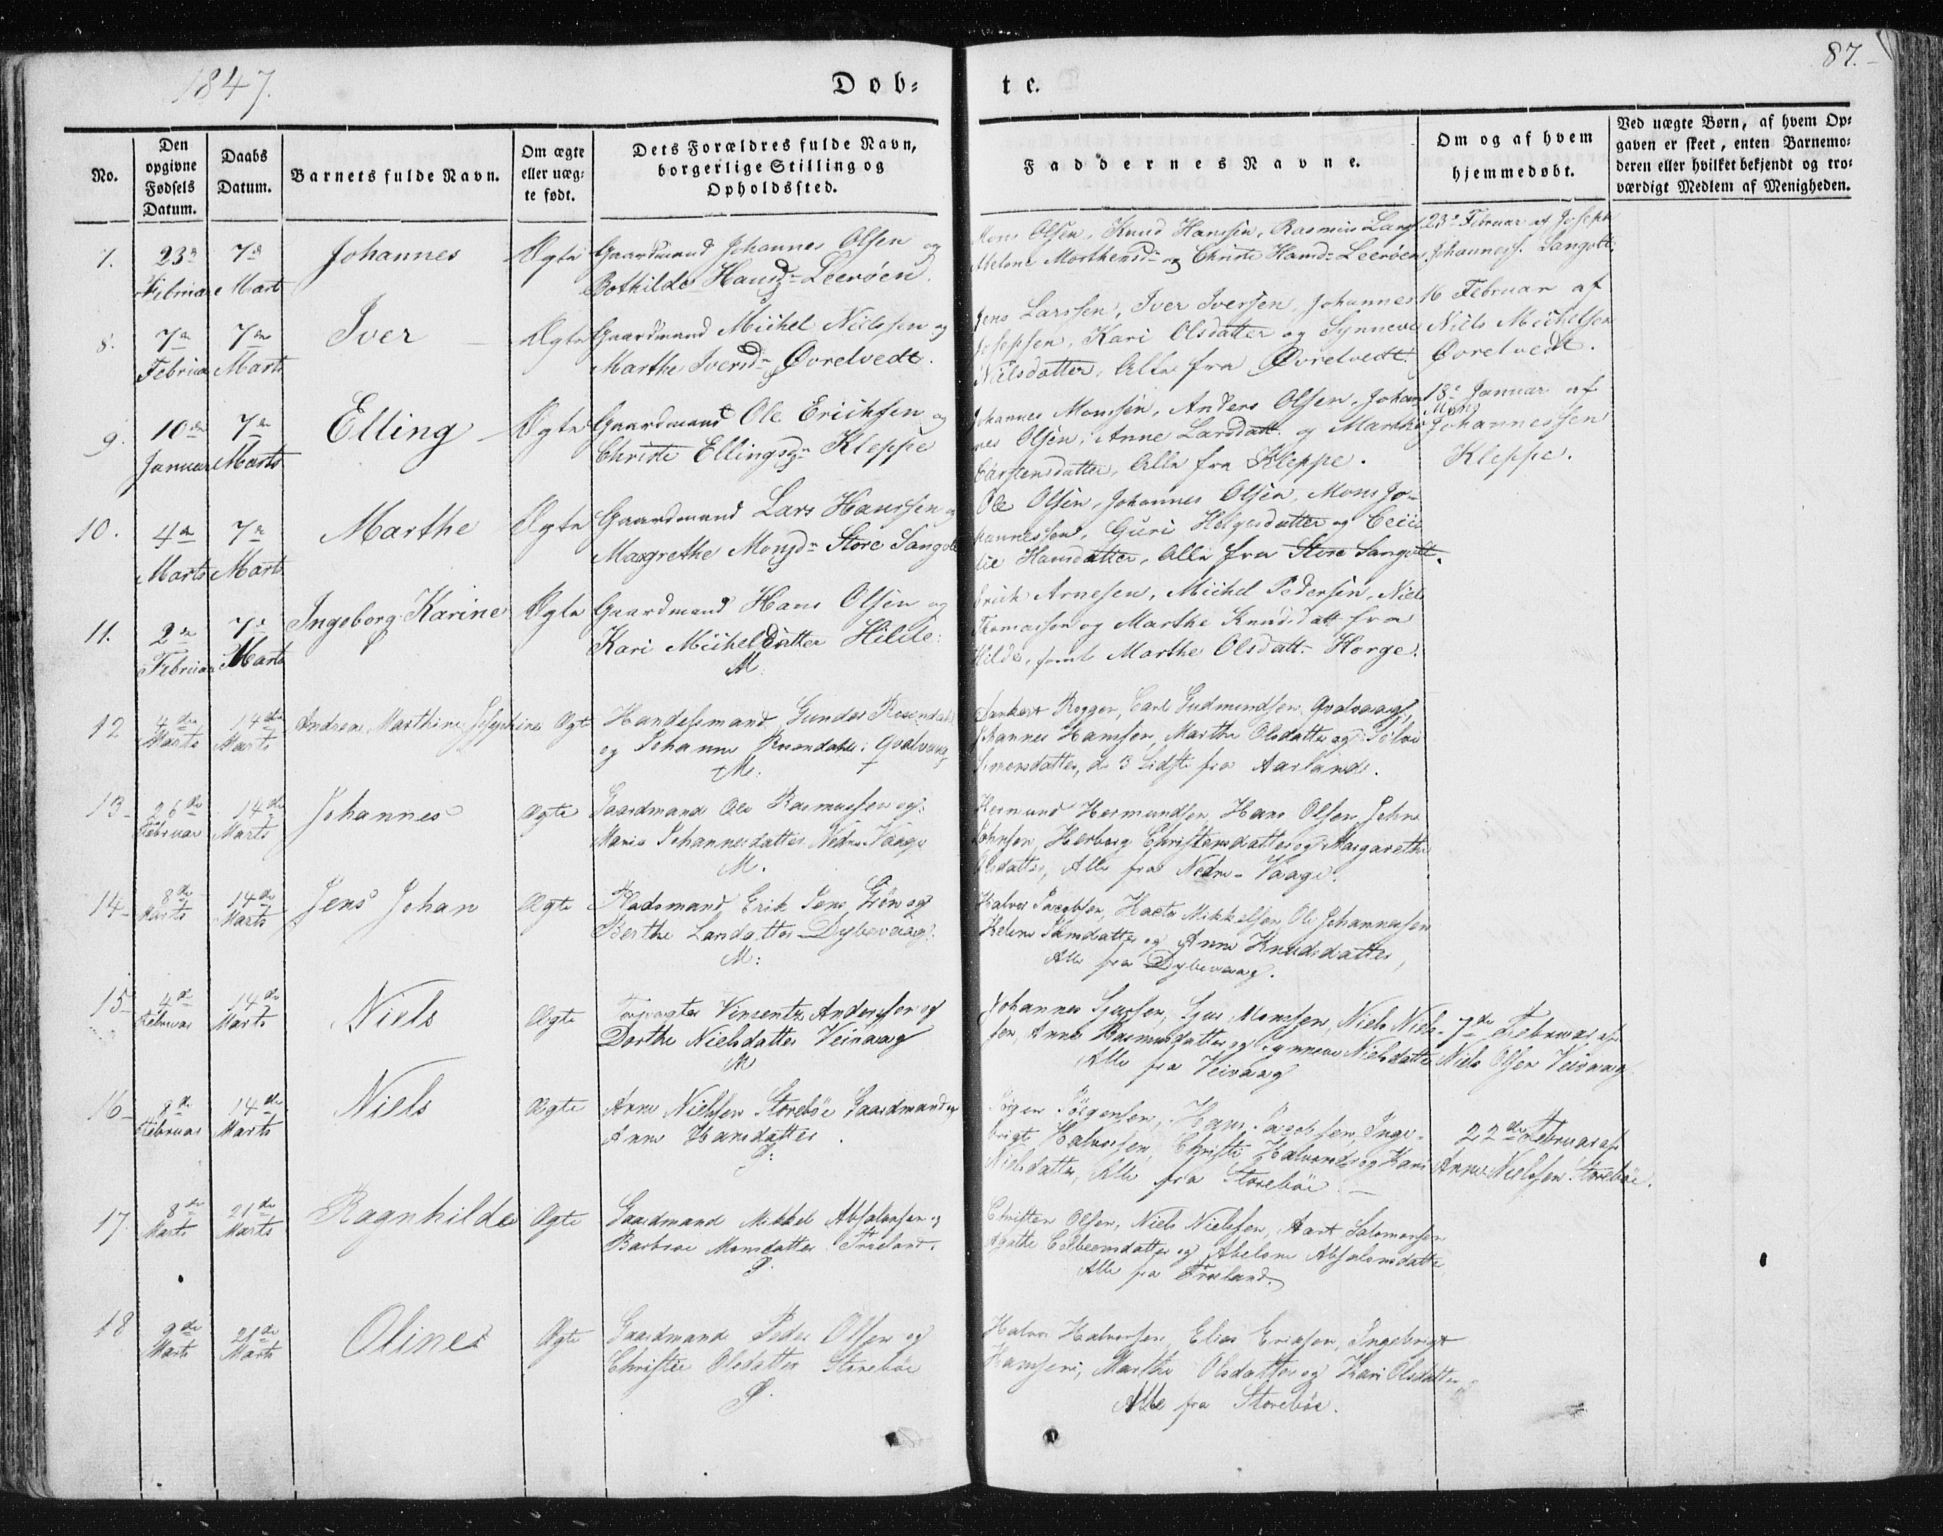 1847.
87.
Døb-
te.
No.
Den opgivne Fødsels Datum.
Daabs Datum.
Barnets fulde Navn.
Om ægte eller uæg-
te født.
Dets Forældres fulde Navn,
borgerlige Stilling og
Opholdssted.
Faddernes Navne.
Om og af hvem
hjemmedøbt.
Ved uægte Børn, af hvem Op-
gaven er skeet, enten Barnemo-
deren eller hvilket bekjendt og tro-
værdigt Medlem af Menigheden.
7.
23de Februar
7de Marts
Johannes
Ægte
Gaardmand Johannes Olsen og
Bothilde Hansd. Leerøen.
Olsen, Knud Hansen, Rasmus Lars
Abelone Morthensd. og Christi Hansd. Leerøen
23de Februar af Joseph
Johanness. Sangolt
8.
7de Februar
7de Marts
Iver
Ægte
Gaardmand Michel Nielssen og
Marthe Iversd. Øvretvedt.
Jens Larssen, Iver Iversen, Johannes
Josepsen, Kari Olsdatter og Synneve
Nielsdatter, Alle fra Øvretvedt.
16 Februar af
Niels Michelsen
Øvretvedt.
9.
10de Januar
7de Marts
Elling
Ægte
Gaardmand Ole Erichsen og
Christi Ellingsd. Kleppe
Johannes Monssen, Anders Olsen, Johan-
nes Olsen, Anne Larsdatt. og Marthe
Carstensdatter, Alle fra Kleppe.
18de Januar af
Mons
Johannessen
Kleppe.
10.
4de Marts
7de Marts
Marthe
Ægte
Gaardmand Lars Hanssen og
Margrethe Monsd. Store Sangolt
Ole Olsen, Johannes Olsen, Mons Jo-
hannessen, Guri Helgesdatter og Ceci-
lie Hansdatter, Alle fra Store Sangolt.
11.
2de Februar
7de Marts
Ingeborg Karine
Ægte
Gaardmand Hans Olsen og
Kari Micheldatter Hilde.
M.
Erich Arnesen, Michel Pedersen, Niels
Thomassen og Marthe Knudsdatt fra
Hilde, samt Marthe Olsdatt. Horge.
12
4de Marts
14de Marts
Andrea Marthine Josephine
Ægte
Handelsmand Gunder Rosendahl
og Johanne Rosendahl: Qvalvaag
M:
Rogger, Carl Gudmundsen Qvalvaag,
Johannes Hansen, Marthe Olsdatter og
datter, de 3 Sidste fra Aarland.
13
26de Februar
14de Marts
Johannes
Ægte
Gaardmand Ole Rasmussen og
Maria Johannesdatter Nedre Vaage
M.
Hermund Hermundsen, Hans Olsen, John
Johnsen, Herborg Christensdatter og Margarethe
Olsdatter, Alle fra Nedre-Vaage.
14
8de Marts
14de Marts
Jens Johan
Ægte
Pladsmand Erik Jens. Grøn og
Berthe Larsdatter Dybevaag
M:
Halvor Jacobsen, Mikkelsen, Ole Johannessen
Helene datter og Anna Knudsdatter,
Alle fra Dybevaag.
15
4de Februar
14de Marts
Niels
Ægte
Vinsents Anderssen og
Dorthe Nielsdatter Veivaag
M
Johannes Sjursen, Sjur Monsen, Niels Niel-
sen, Anna Rasmusdatter og Synneve Nielsdatter
Alle fra Veivaag
7de Februar af
Niels Olsen Veivaag
16
8de Februar
14de Marts
Niels
Ægte
Arne Nielsen Storebøe Gaardmand og
Anne Hansdatter.
Jørgen Jørgensen, Hans Jacobsen, Inge-
brigt Halvorsen, Christi Halvorsd. og Kari
Nielsdatter, Alle fra Storebøe.
22de Februar af
Arne Nielssen Storebøe.
17.
8de Marts
21de Marts
Ragnhilde
Ægte
Gaardmand Mikkel Absalonsen og
Barbroe Monsdatter Frøland.
Christen Olsen, Niels Nielsen, Salomonsen
Agathe datter og Abelone Absalonsdatter
Alle fra Frøland.
18
9de Marts
21de Marts
Oline
Ægte
Gaardmand Peder Olsen og
Christie Olsdatter Storebøe
Halvor Halvorsen, Elias Eriksen, Ingebrigt
Hansen, Marthe Olsdatter og Kari Olsdatter
Alle fra Storebøe.